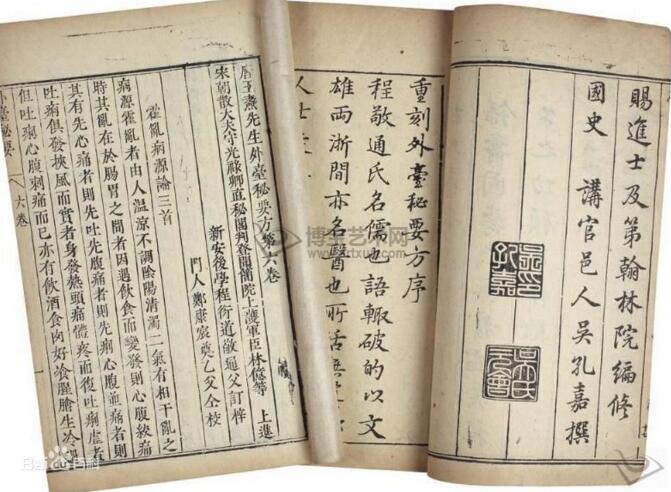 賜進士及第翰林院編修
國史　講官邑人吳孔嘉撰
重刻外臺秘要方序
程敬通氏名儒也語輙破的以文
雄両浙間亦名醫也所活
唐王燾先生外臺秘要方第六卷
宋朝散大夫守光祿卿直秘閣判登聞簡院上護軍臣林億等　上進
新安後學程衍道敬通父訂梓
門人鄭康宸莫乙父仝校
霍亂病源論三首
病源霍亂者由人溫涼不調陰陽清濁二氣有相干亂之
時其亂在於腸胃之間者因遇飲食而變發則心腹絞痛
其有先心痛者則先吐先腹痛者則先痢心腹並痛者則
吐痢俱發挾風而實者身發熱頭痛體疼而復吐痢虛者
但吐痢心腹刺痛而已亦有飲酒食肉好飡腥膾生冷
外臺秘要　六卷
博宝艺术网
Baidu百科